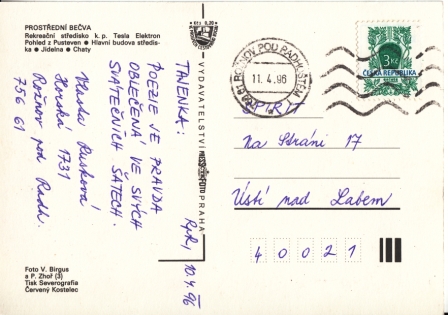 PROSTŘEDNÍ BEČVA
Rekreační středisko k. p. Tesla Elektron
Pohled z Pusteven ● Hlavní budova středis-
ka ● Jídelna ● Chaty
TAJENKA:
POEZIE JE PRAVDA
OBLEČENÁ VE SVÝCH
SVÁTEČNÍCH ŠATECH.
Vlasta Rusková
Horská 1731
Rožnov pod Radh.
756 61
RpR, 10.4.96
Foto V. Birgus
a P. Zhoř (3)
Tisk Severografia
Červený Kostelec
VYDAVATELSTVÍ PRESSFOTO PRAHA
ROŽNOV POD RADHOŠTĚM
11. 4. 96
3 Kč
ČESKÁ REPUBLIKA
SPIRIT
Na Stráni 17
Ústí nad Labem
40021